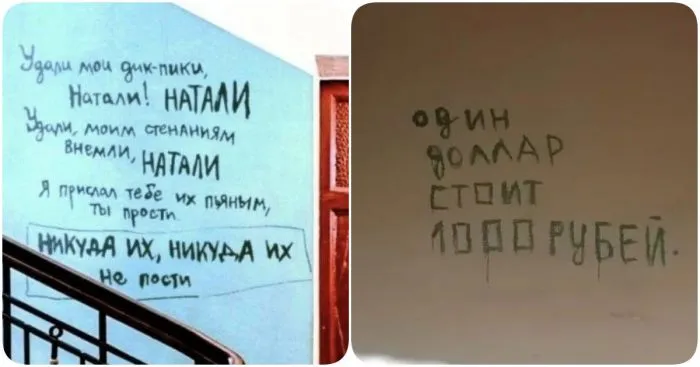 Удали мои дик-пики,
Натали! НАТАЛИ
Удали, моим стенаниям
внемли, НАТАЛИ
Я прислал тебе их пьяным,
ты прости
НИКУДА ИХ, НИКУДА ИХ
не пости
один
доллар
стоит
1000 РУБЕЙ.